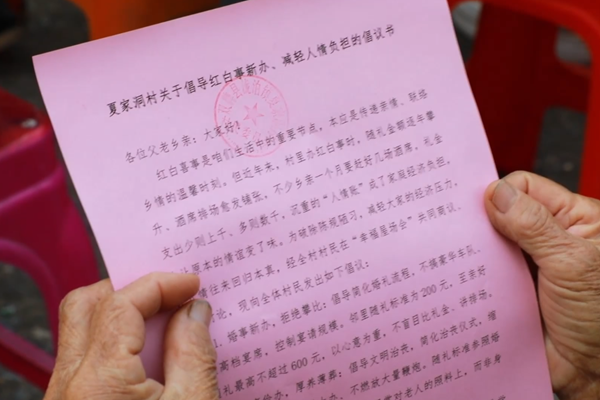 夏家洞村关于倡导红白事新办、减轻人情负担的倡议书
各位父老乡亲：大家好！
红白喜事是咱们生活中的重要节点，本应是传递亲情、联络
乡情的温馨时刻。但近年来，村里办红白事时，随礼金额逐年攀
升、酒席排场愈发铺张，不少乡亲一个月要赶好几场酒席，礼金
支出少则上千、多则数千，沉重的“人情账”成了家庭经济负担，
让原本的情谊变了味。为破除陈规陋习，减轻大家的经济压力，
情往来回归本真，经全村村民在“幸福屋场会”共同商议、
论，现向全体村民发出如下倡议：
1. 婚事新办，拒绝攀比：倡导简化婚礼流程，不搞豪华车队、
高档宴席，控制宴请规模。邻里随礼标准为 200 元，至亲好
礼最高不超过 600 元，以心意为重，不盲目比礼金、讲排场。
办，厚养薄葬：倡导文明治丧，简化治丧仪式，缩
、不燃放大量鞭炮。随礼标准参照婚
对老人的照料上，而非身